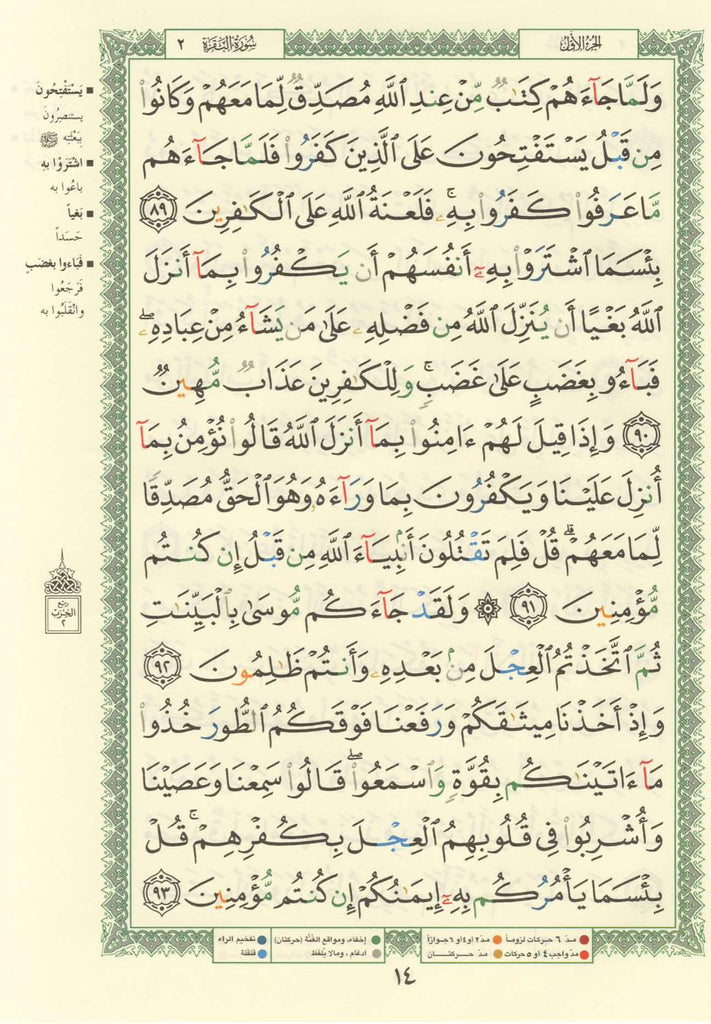 الجزء الأول
سورة البقرة ٢
وَلَمَّا جَآءَهُمْ كِتَٰبٌ مِّنْ عِندِ ٱللَّهِ مُصَدِّقٌ لِّمَا مَعَهُمْ وَكَانُوا۟
مِن قَبْلُ يَسْتَفْتِحُونَ عَلَى ٱلَّذِينَ كَفَرُوا۟ فَلَمَّا جَآءَهُم
مَّا عَرَفُوا۟ كَفَرُوا۟ بِهِۦ ۚ فَلَعْنَةُ ٱللَّهِ عَلَى ٱلْكَٰفِرِينَ ٨٩
بِئْسَمَا ٱشْتَرَوْا۟ بِهِۦٓ أَنفُسَهُمْ أَن يَكْفُرُوا۟ بِمَآ أَنزَلَ
ٱللَّهُ بَغْيًا أَن يُنَزِّلَ ٱللَّهُ مِن فَضْلِهِۦ عَلَىٰ مَن يَشَآءُ مِنْ عِبَادِهِۦ ۖ
فَبَآءُو بِغَضَبٍ عَلَىٰ غَضَبٍ ۚ وَلِلْكَٰفِرِينَ عَذَابٌ مُّهِينٌ
٩٠ وَإِذَا قِيلَ لَهُمْ ءَامِنُوا۟ بِمَآ أَنزَلَ ٱللَّهُ قَالُوا۟ نُؤْمِنُ بِمَآ
أُنزِلَ عَلَيْنَا وَيَكْفُرُونَ بِمَا وَرَآءَهُۥ وَهُوَ ٱلْحَقُّ مُصَدِّقًا
لِّمَا مَعَهُمْ ۗ قُلْ فَلِمَ تَقْتُلُونَ أَنۢبِيَآءَ ٱللَّهِ مِن قَبْلُ إِن كُنتُم
مُّؤْمِنِينَ ٩١ ۞ وَلَقَدْ جَآءَكُم مُّوسَىٰ بِٱلْبَيِّنَٰتِ
ثُمَّ ٱتَّخَذْتُمُ ٱلْعِجْلَ مِنۢ بَعْدِهِۦ وَأَنتُمْ ظَٰلِمُونَ ٩٢
وَإِذْ أَخَذْنَا مِيثَٰقَكُمْ وَرَفَعْنَا فَوْقَكُمُ ٱلطُّورَ خُذُوا۟
مَآ ءَاتَيْنَٰكُم بِقُوَّةٍ وَٱسْمَعُوا۟ ۖ قَالُوا۟ سَمِعْنَا وَعَصَيْنَا
وَأُشْرِبُوا۟ فِى قُلُوبِهِمُ ٱلْعِجْلَ بِكُفْرِهِمْ ۚ قُلْ
بِئْسَمَا يَأْمُرُكُم بِهِۦٓ إِيمَٰنُكُمْ إِن كُنتُم مُّؤْمِنِينَ ٩٣
■ يَسْتَفْتِحُونَ
يستنصِرُونَ
بِبَعْثَتِهِ ﷺ
■ اشْتَرَوْا بِهِ
باعُوا به
■ بَغْياً
حَسَداً
■ فَبَاءُوا بغضَبٍ
فَرَجَعُوا
وانْقَلَبُوا به
ربع
الحزب
٢
مدّ ٦ حركات لزوماً
مدّ ٢ او ٤ او ٦ جوازاً
إخفاء، ومواقع الغُنَّة (حركتان)
تفخيم الراء
مدّ واجب ٤ او ٥ حركات
مدّ حركتان
ادغام ، ومالا يُلفظ
قلقلة
١٤